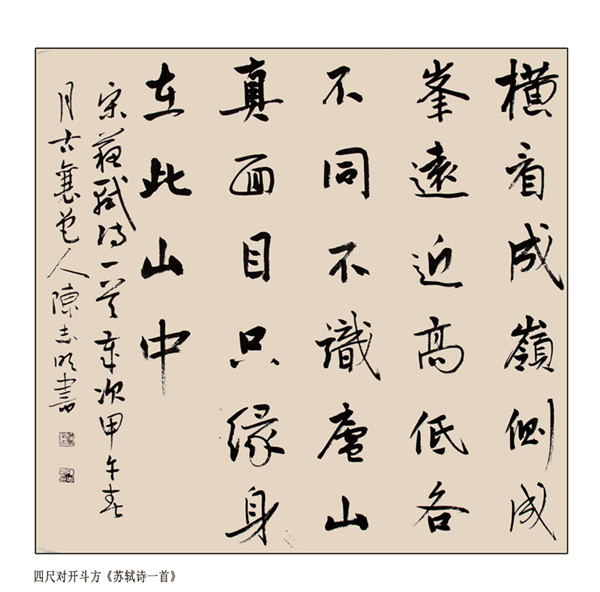 橫看成嶺側成
峯遠近高低各
不同不識廬山
真面目只緣身
在此山中
宋蘇軾詩一首歲次甲午春
月古襄邑人陳志明書
四尺对开斗方《苏轼诗一首》